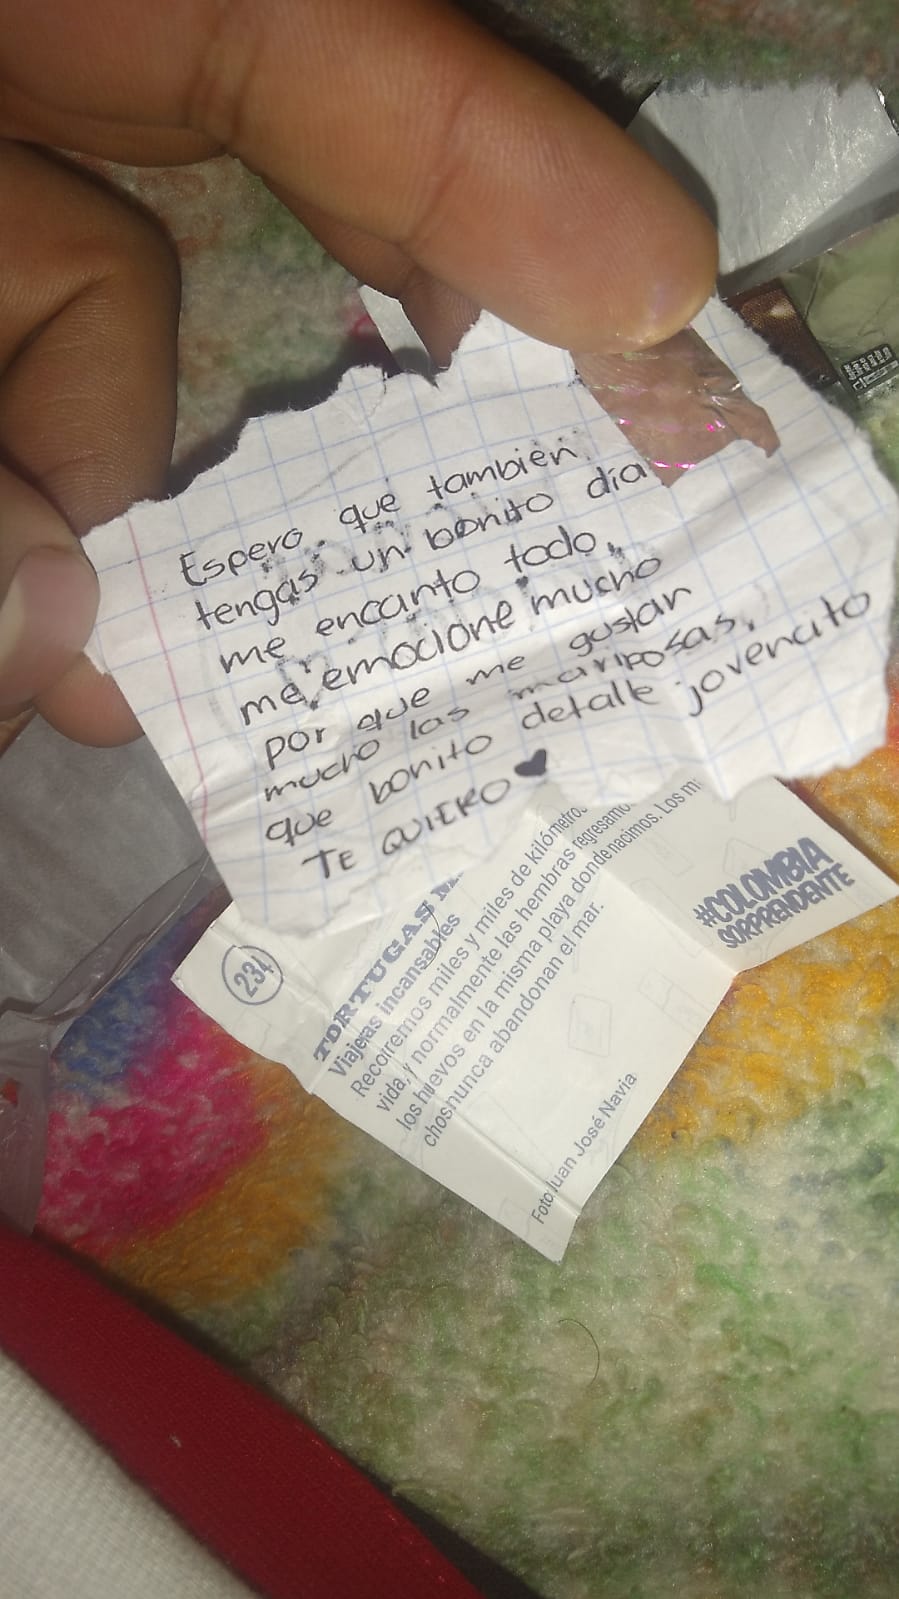 Espero que también
tengas un bonito día
me encanto todo,
me emocione mucho
por que me gustan
mucho las mariposas,
que bonito detalle jovencito
TE QUIERO
234
TORTUGAS M
Viajeras incansables
Recorremos miles y miles de kilómetros
vida, y normalmente las hembras regresamo
los huevos en la misma playa donde nacimos. Los m
chos nunca abandonan el mar.
Foto Juan José Navia
#COLOMBIA
SORPRENDENTE